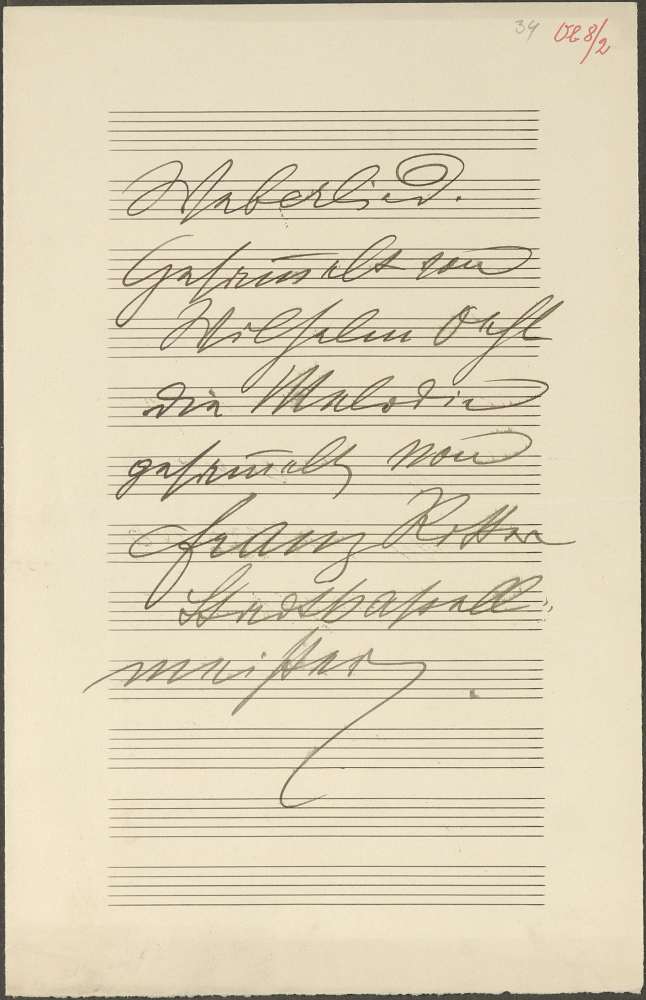 34 VB 8/2
Weberlied.
Gesammelt von
Wilhelm Oehl
die Melodie
gesammelt von
Franz Rotter
Stadtkapell-
meister.